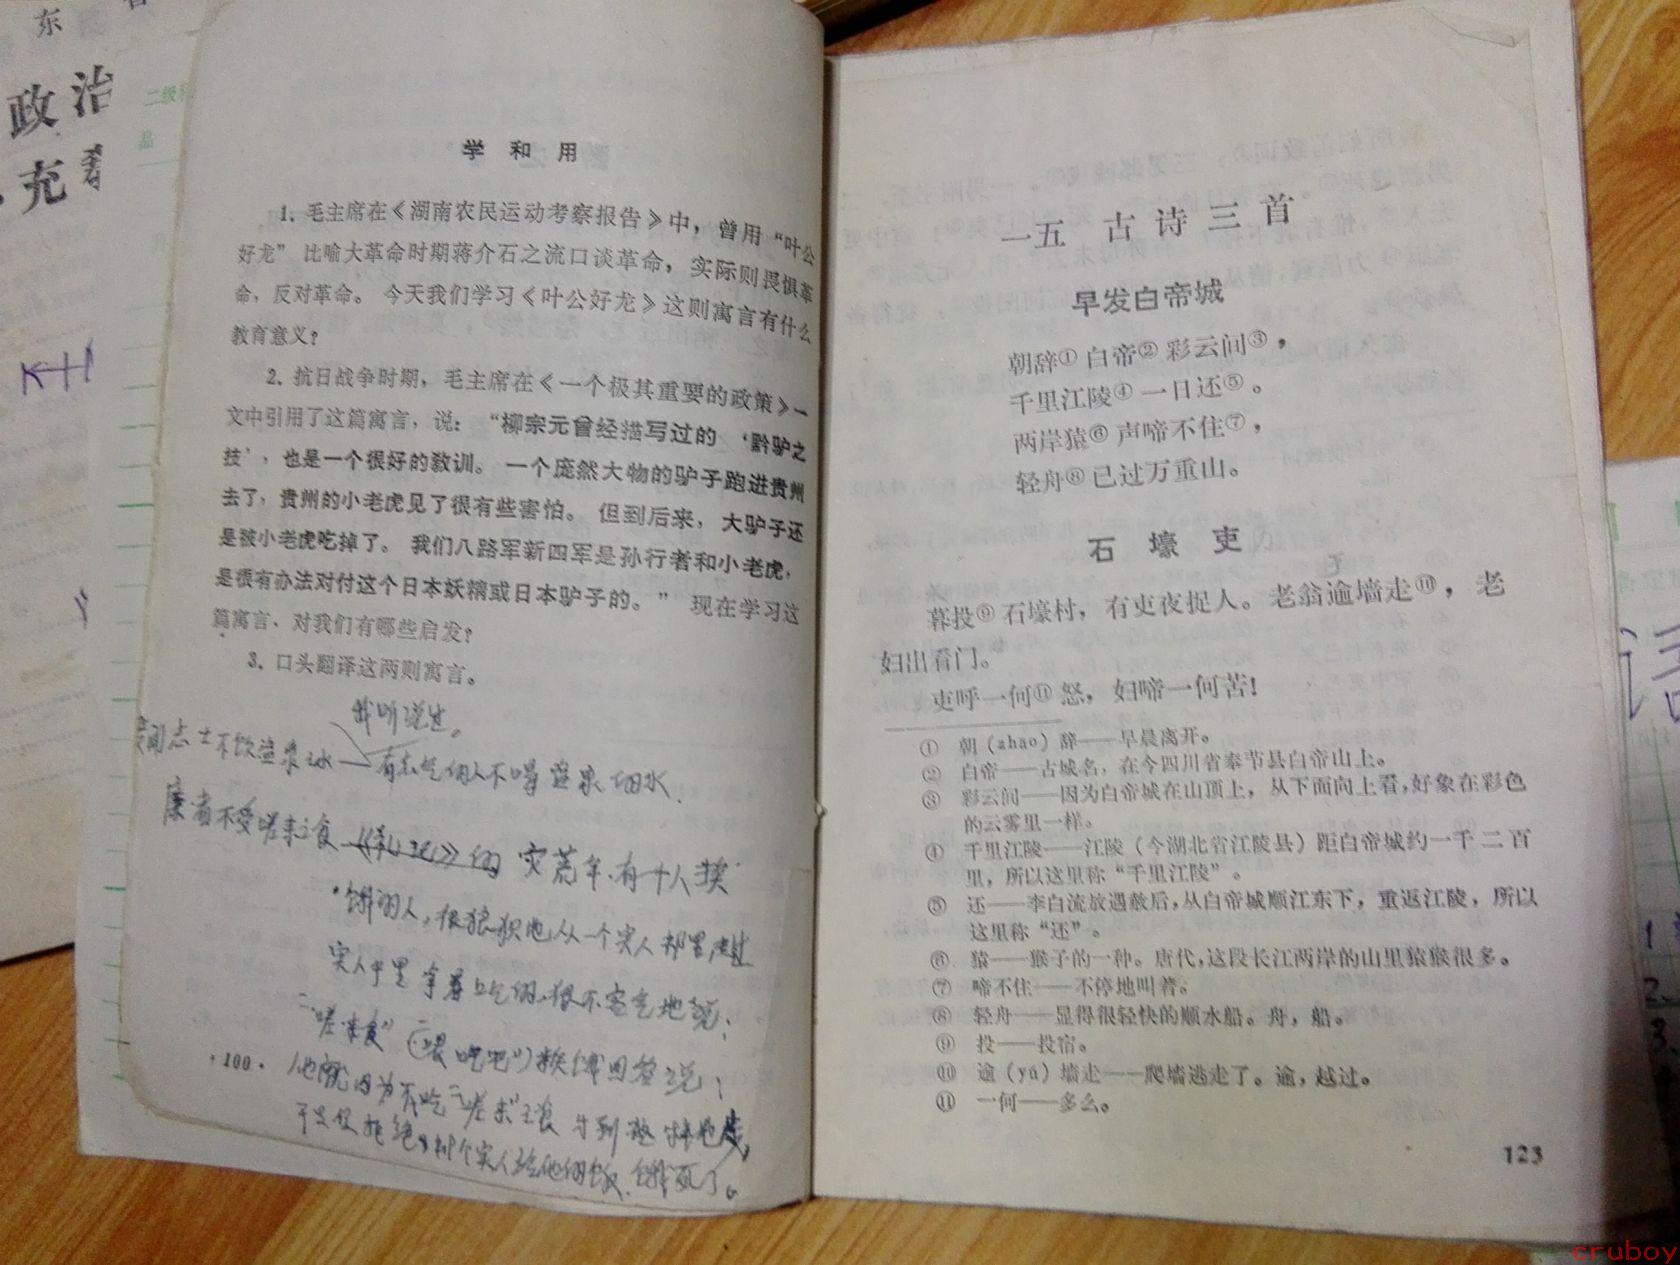 东
政治
充
二级
品
学 和 用
1. 毛主席在《湖南农民运动考察报告》中，曾用“叶公
好龙” 比喻大革命时期蒋介石之流口谈革命，实际则畏惧革
命，反对革命。 今天我们学习《叶公好龙》这则寓言有什么
教育意义？
2. 抗日战争时期，毛主席在《一个极其重要的政策》一
文中引用了这篇寓言，说：“柳宗元曾经描写过的 ‘黔驴之
技’，也是一个很好的教训。 一个庞然大物的驴子跑进贵州
去了，贵州的小老虎见了很有些害怕。 但到后来，大驴子还
是被小老虎吃掉了。 我们八路军新四军是孙行者和小老虎，
是很有办法对付这个日本妖精或日本驴子的。” 现在学习这
篇寓言、对我们有哪些启发？
3. 口头翻译这两则寓言。
我听说过。
闻志士不饮盗泉之水——有志气的人不喝盗泉的水.
廉者不受嗟来之食——《礼记》的 灾荒年.有一个人挨
饿的人，很狼狈地从一个实人那里走过
实人手里拿着吃的，很不客气地说：
“嗟来食”（“喂吃吧”）挨饿回答说：
100
他就因为不吃“嗟来”之食 才到这样地步，
于是仅拒绝了那个实人给他的饭.饿死了。
一五 古 诗 三 首
早发白帝城
朝辞① 白帝② 彩云间③，
千里江陵④ 一日还⑤。
两岸猿⑥ 声啼不住⑦，
轻舟⑧ 已过万重山。
石 壕 吏
暮投⑨ 石壕村，有吏夜捉人。老翁逾墙走⑩，老
妇出看门。
吏呼一何⑪ 怒，妇啼一何苦！
① 朝（zhāo）辞——早晨离开。
② 白帝——古城名，在今四川省奉节县白帝山上。
③ 彩云间——因为白帝城在山顶上，从下面向上看，好象在彩色
的云雾里一样。
④ 千里江陵——江陵（今湖北省江陵县）距白帝城约一千二百
里，所以这里称“千里江陵”。
⑤ 还——李白流放遇赦后，从白帝城顺江东下，重返江陵，所以
这里称“还”。
⑥ 猿——猴子的一种。唐代，这段长江两岸的山里猿猴很多。
⑦ 啼不住——不停地叫着。
⑧ 轻舟——显得很轻快的顺水船。舟，船。
⑨ 投——投宿。
⑩ 逾（yú）墙走——爬墙逃走了。逾，越过。
⑪ 一何——多么。
123
cruboy